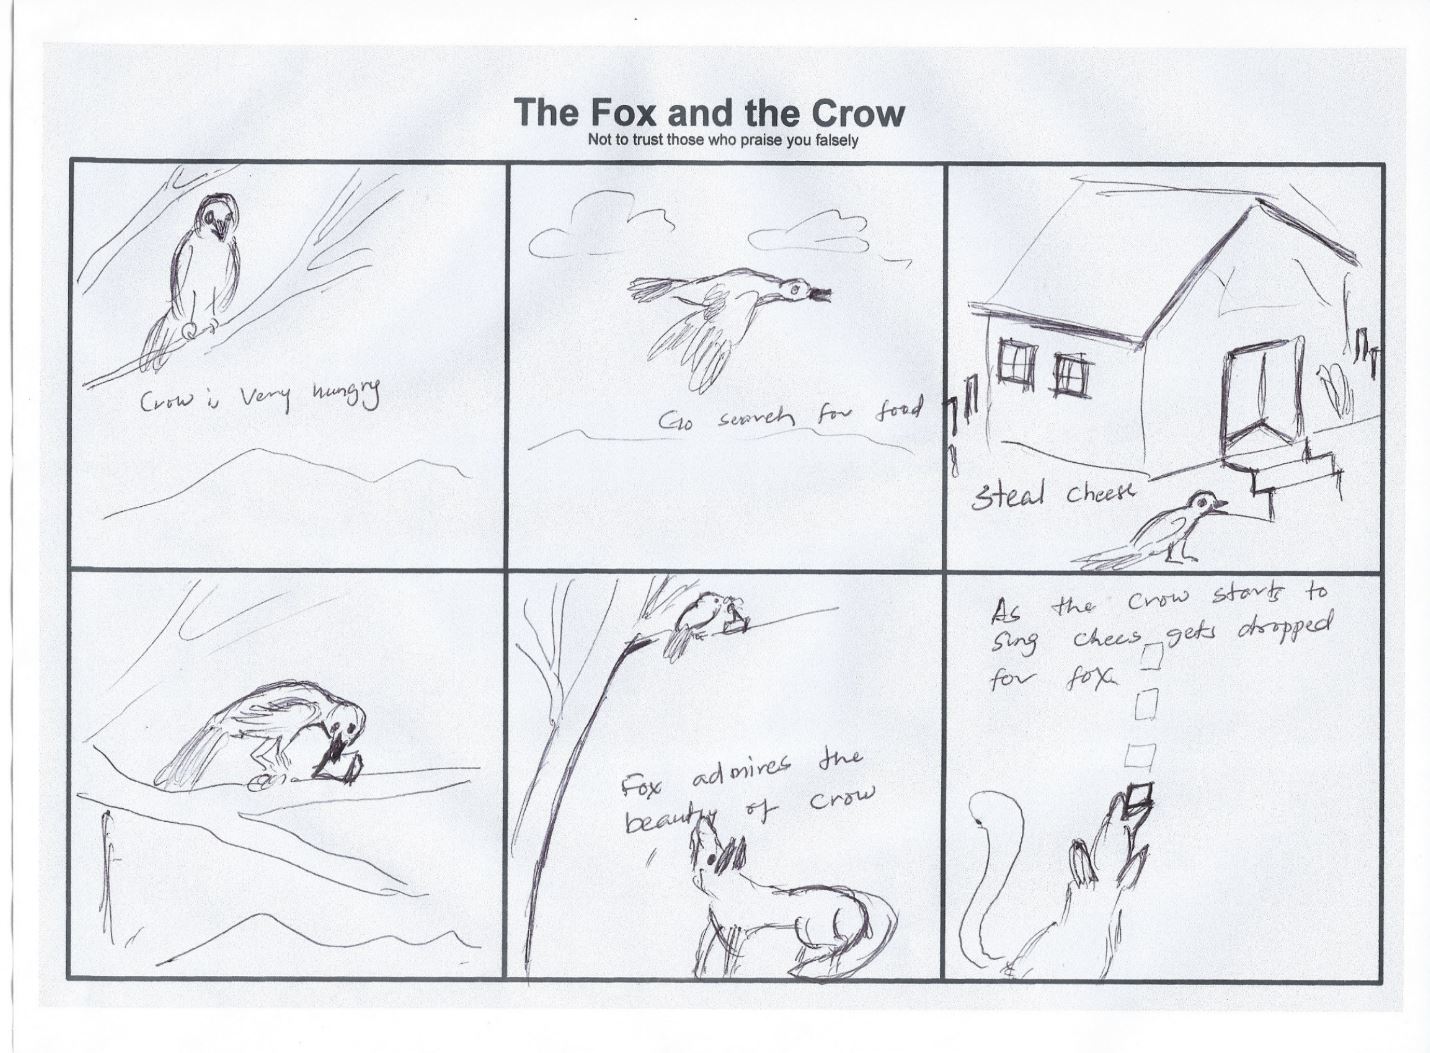 The Fox and the Crow
Not to trust those who praise you falsely
Crow is very hungry
Go search for food
Steal cheese
Fox admires the
beauty of crow
As the crow starts to
sing chees gets dropped
for fox.